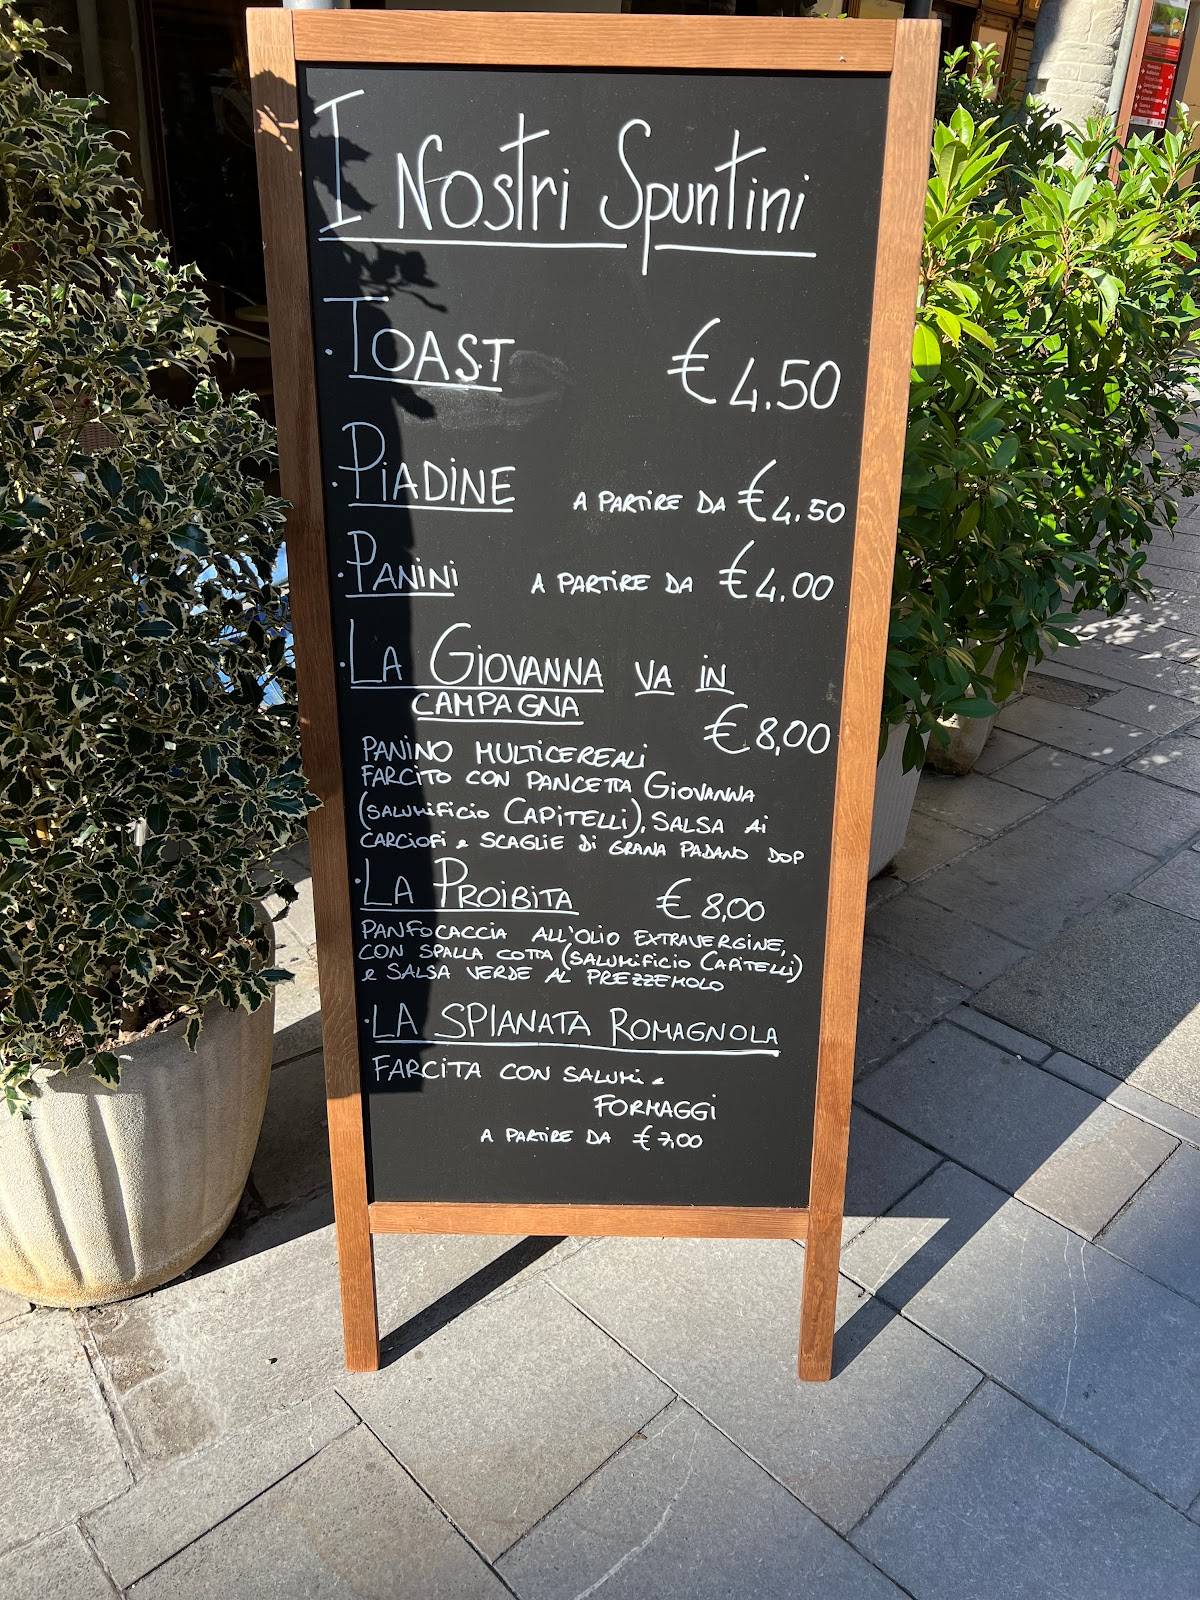 I Nostri Spuntini
· TOAST € 4.50
· PIADINE A PARTIRE DA € 4.50
· PANINI A PARTIRE DA € 4.00
· LA GIOVANNA VA IN
CAMPAGNA
€ 8,00
PANINO MULTICEREALI
FARCITO CON PANCETTA GIOVANNA
(SALUMIFICIO CAPITELLI), SALSA AI
CARCIOFI e SCAGLIE DI GRANA PADANO DOP
· LA PROIBITA € 8,00
PANFOCACCIA ALL'OLIO EXTRAVERGINE,
CON SPALLA COTTA (SALUMIFICIO CAPITELLI)
e SALSA VERDE AL PREZZEMOLO
· LA SPIANATA ROMAGNOLA
FARCITA CON SALUMI e
FORMAGGI
A PARTIRE DA € 7,00